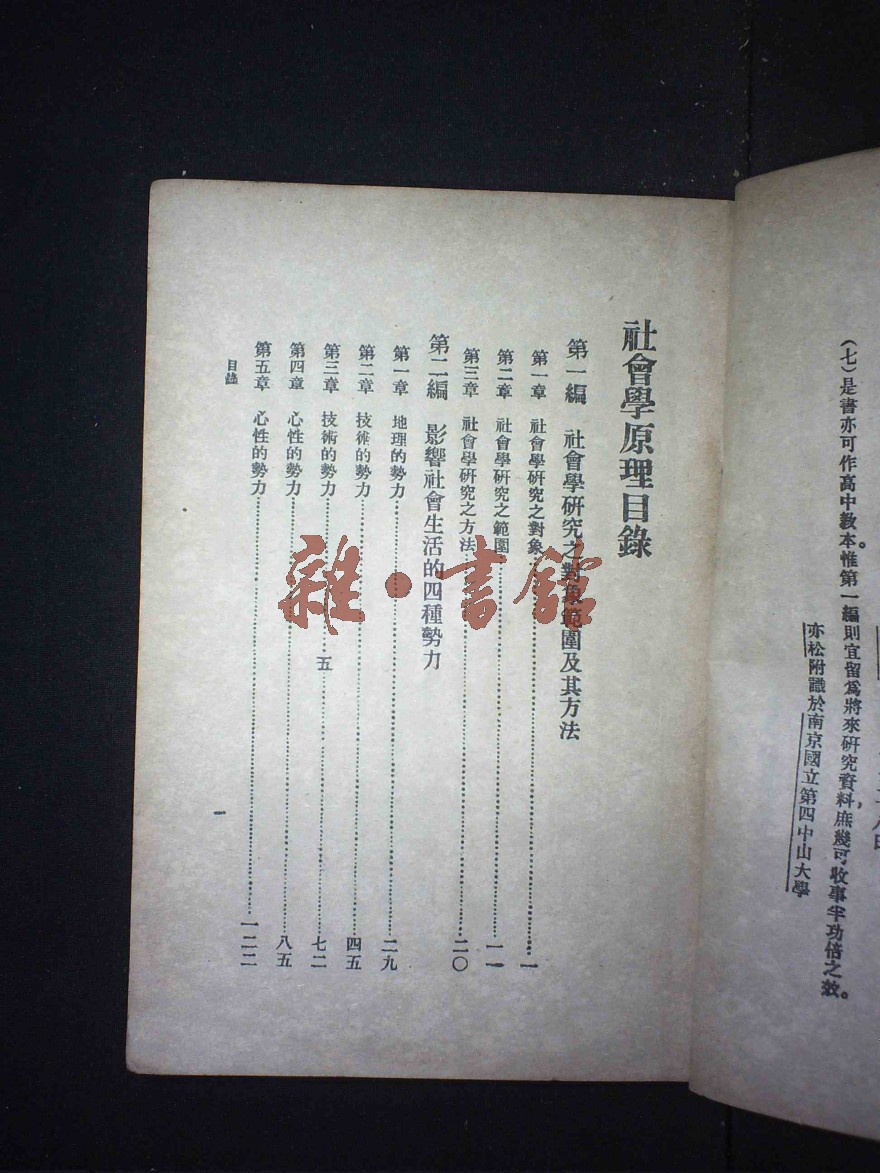 （七）是書亦可作高中教本。惟第一編則宜留爲將來研究資料，庶幾可收事半功倍之效。
亦松附識於南京國立第四中山大學
社會學原理目錄
第一編　社會學研究之對象範圍及其方法
第一章　社會學研究之對象……一
第二章　社會學研究之範圍……一一
第三章　社會學研究之方法……二〇
第二編　影響社會生活的四種勢力
第一章　地理的勢力……二九
第二章　技術的勢力……四五
第三章　技術的勢力……五……七二
第四章　心性的勢力……八五
第五章　心性的勢力……一二二
目錄
一
雜·書館